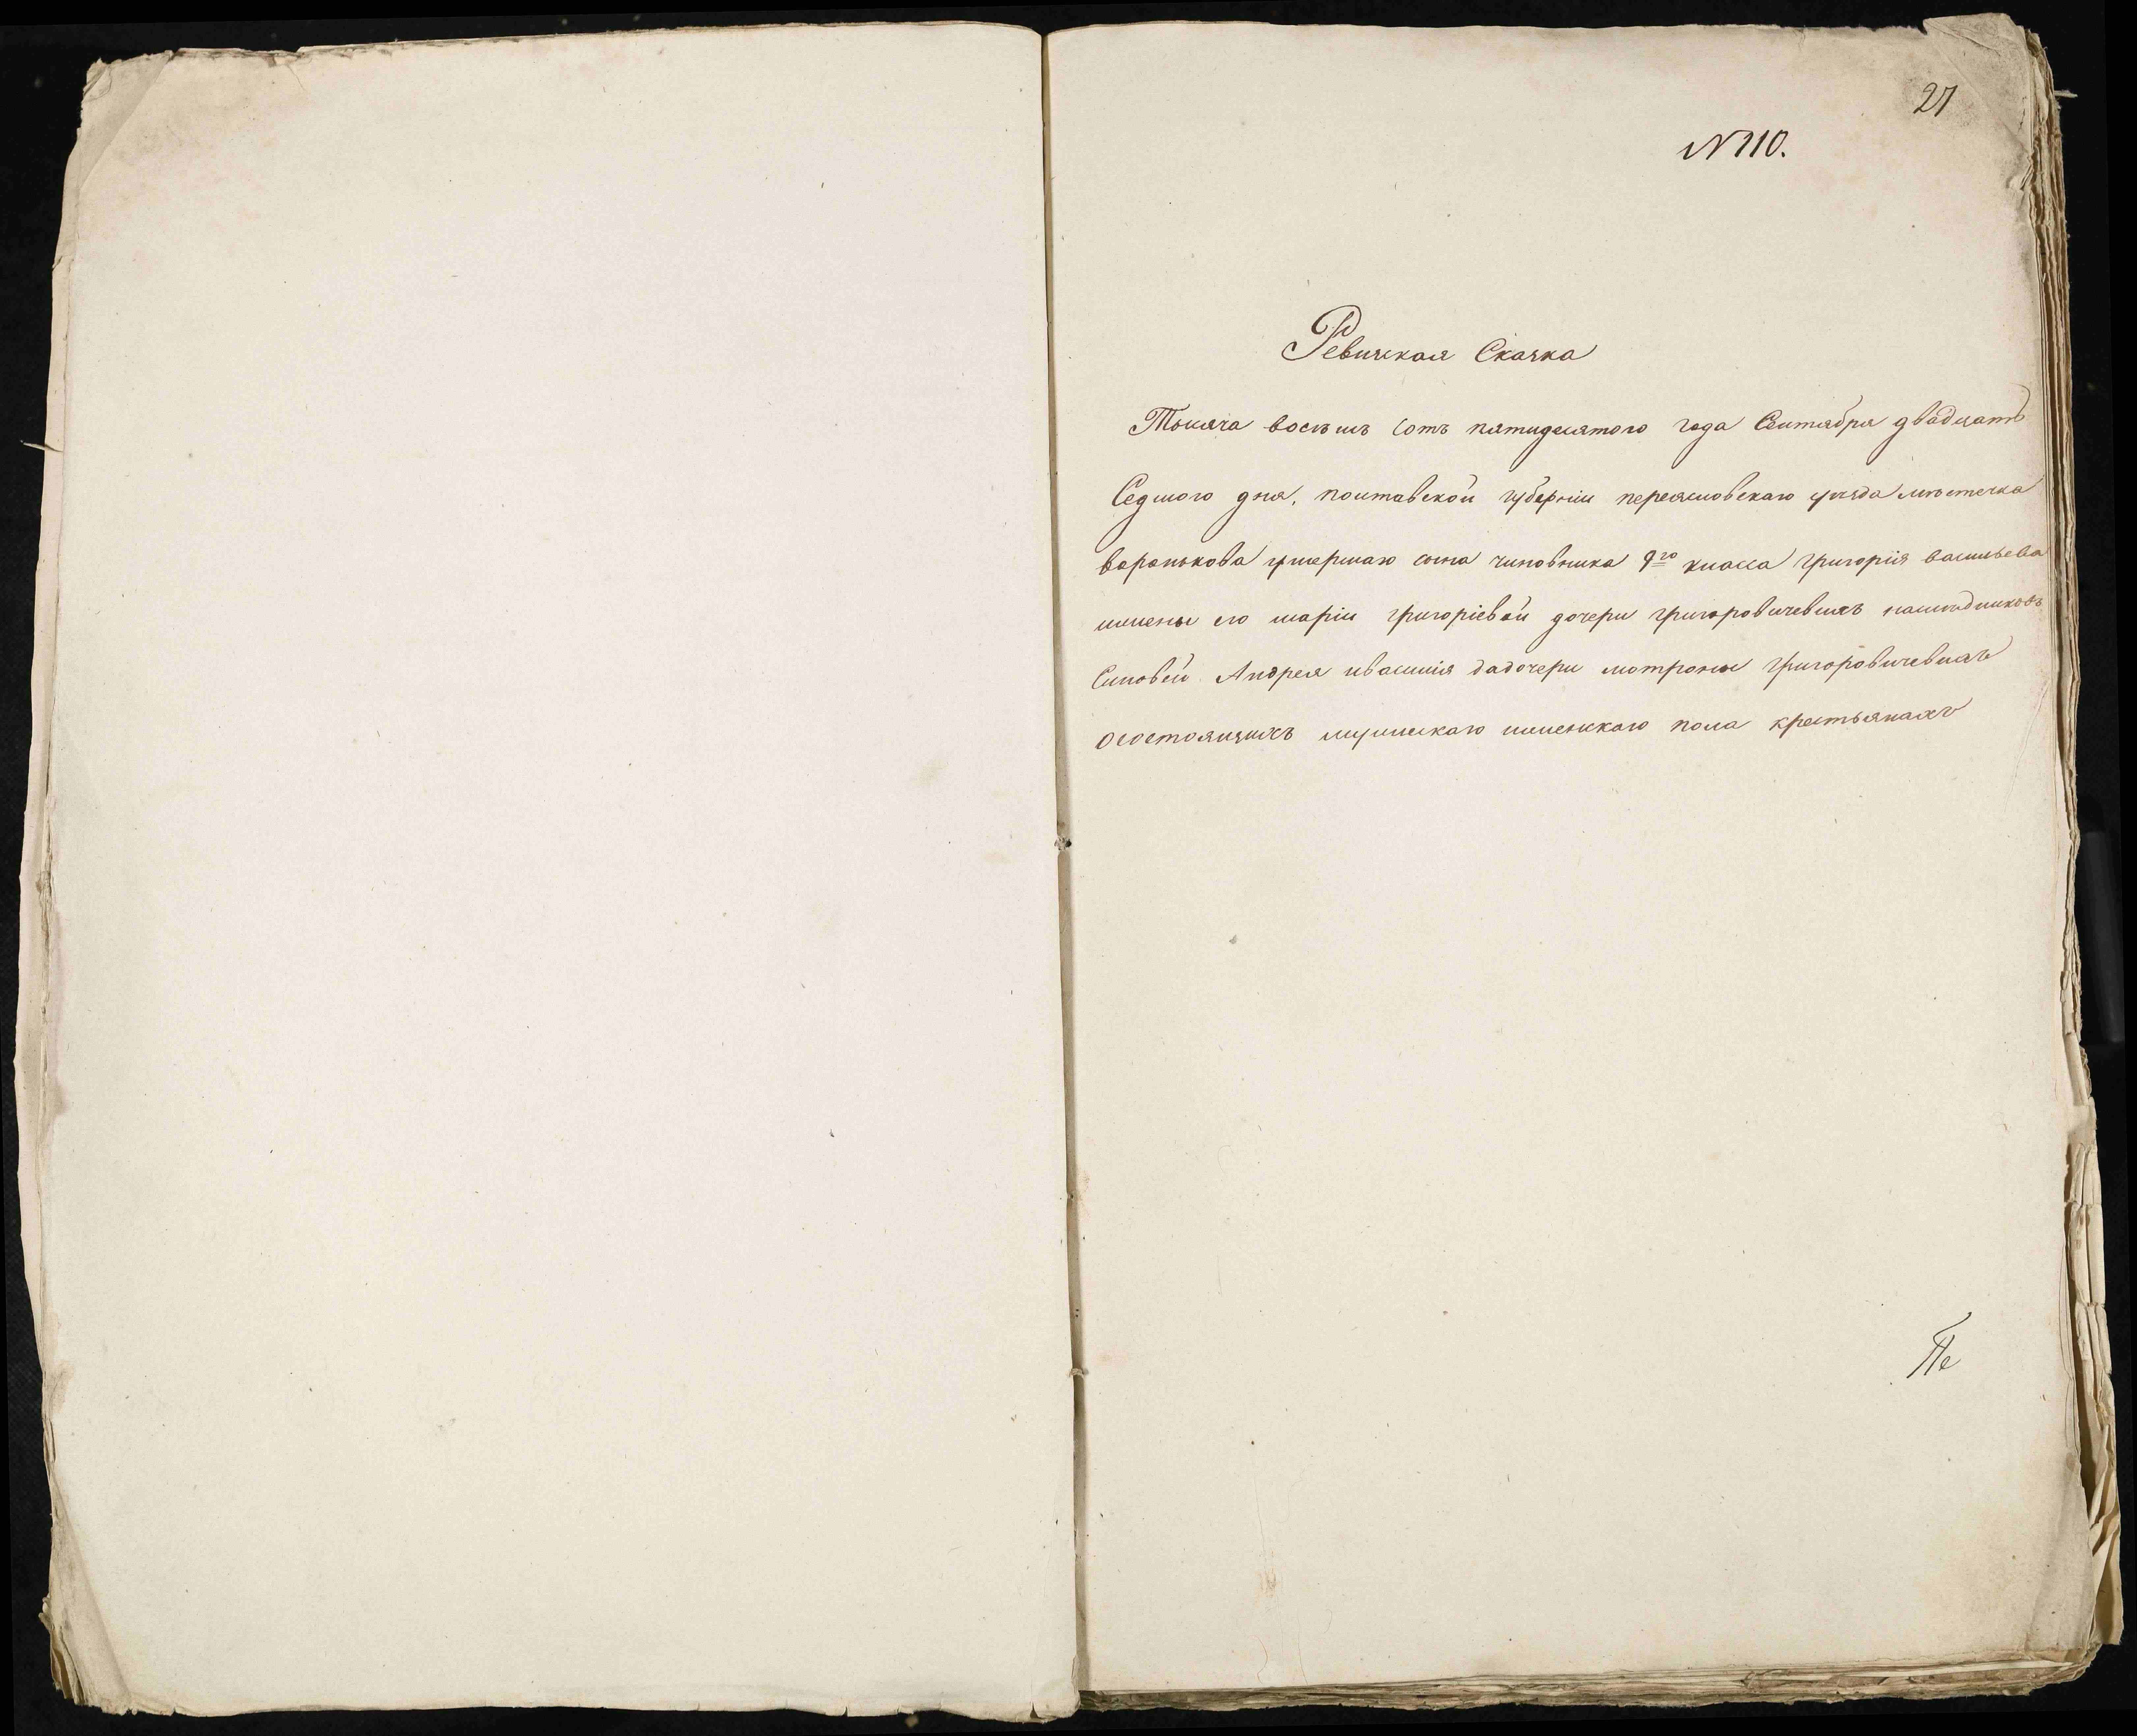 27
N 110.
Ревизская Сказка
Тысяча восемь сотъ пятидесятого года Сентября двадцать
Седмого дня, полтавской губерніи переясловскаго уезда местечка
воронькова умершаго сына чиновника 9го класса григорія васильева
жены его маріи григоріевой дочери григоровичевыхъ наследниковъ
Сыновей Андрея ивасилія дадочери мотроны григоровичевыхъ
осостоящихъ мужескаго иженскаго пола крестьянахъ
Пе